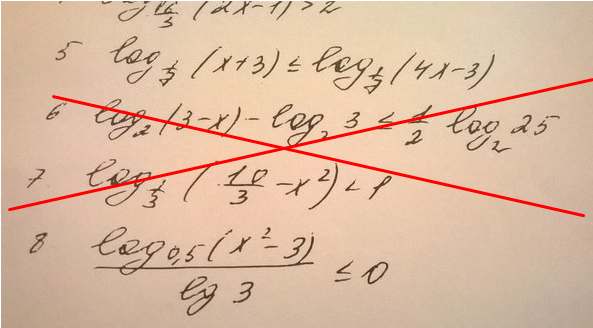 (2x-1)>2
5 log_{1/7} (x+3) ≤ log_{1/7} (4x-3)
6 log_2 (3-x) - log_2 3 ≤ 1/2 log_2 25
7 log_{1/3} (10/3 - x²) < 1
8 log_{0,5}(x²-3) / lg 3 ≤ 0